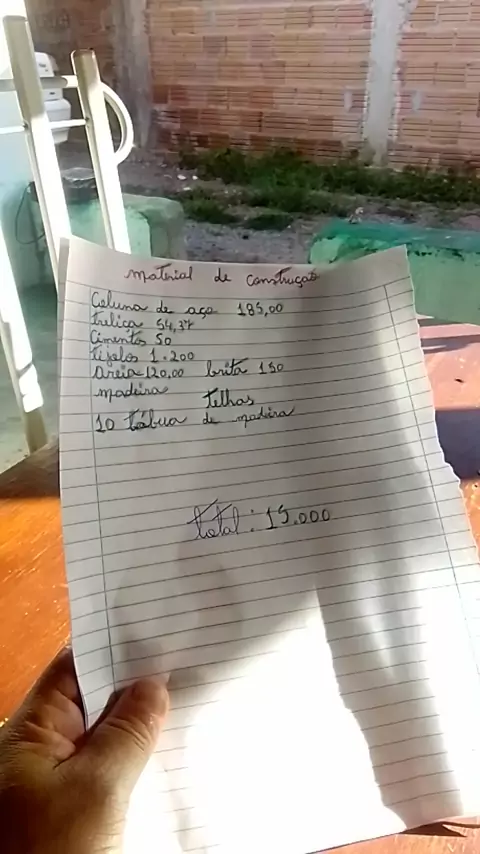 material de construção
Coluna de aço 185,00
treliça 54,37
Cimentos 50
tijolos 1.200
Areia 120,00 brita 150
madeira telhas
10 tábua de madeira
total: 15.000